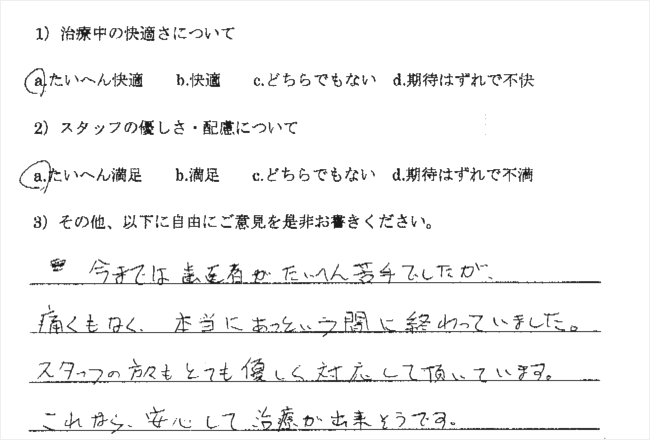 1）治療中の快適さについて
a.たいへん快適 b.快適 c.どちらでもない d.期待はずれで不快
2）スタッフの優しさ・配慮について
a.たいへん満足 b.満足 c.どちらでもない d.期待はずれで不満
3）その他、以下に自由にご意見を是非お書きください。
今までは歯医者がたいへん苦手でしたが、
痛くもなく、本当にあっという間に終わっていました。
スタッフの方々もとても優しく対応して頂いています。
これなら、安心して治療が出来そうです。